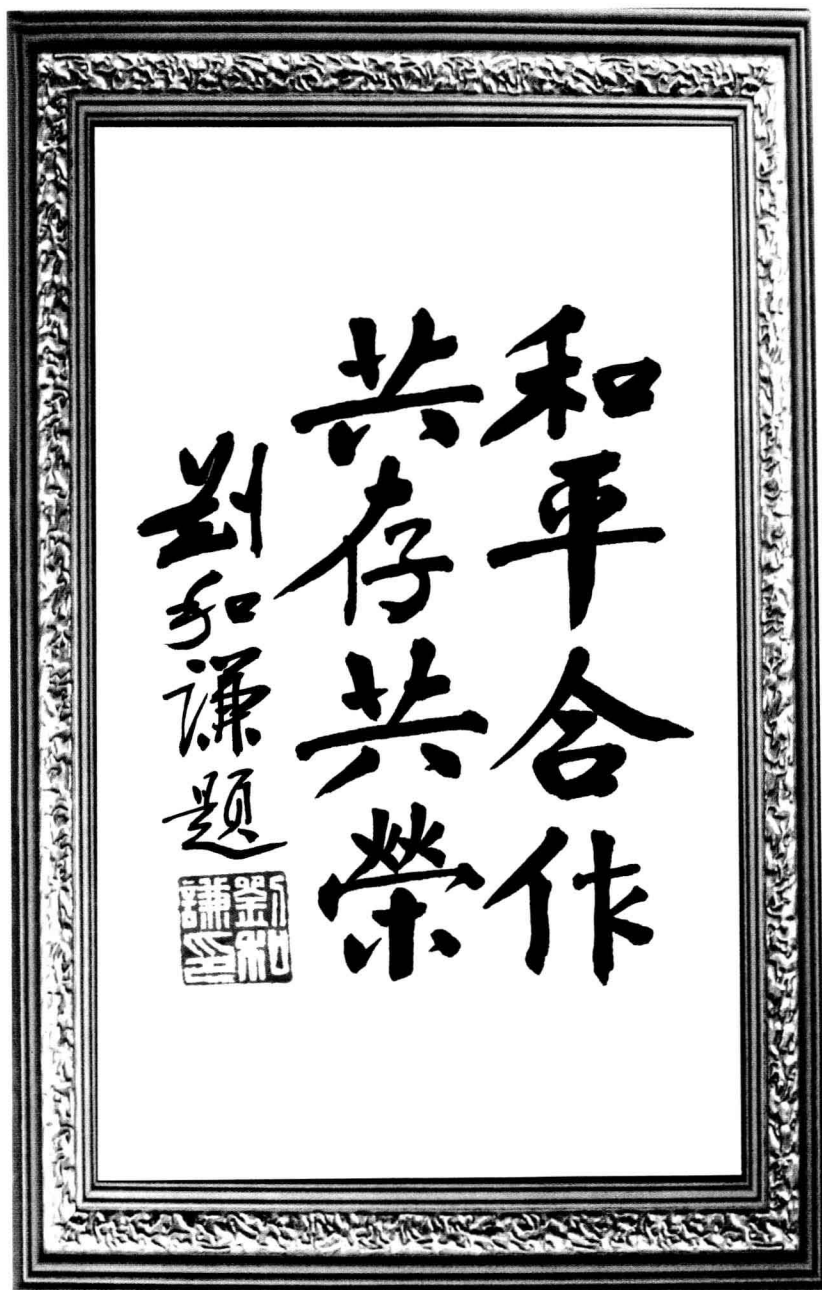 和平合作
共存共榮
劉和謙題
劉和謙印